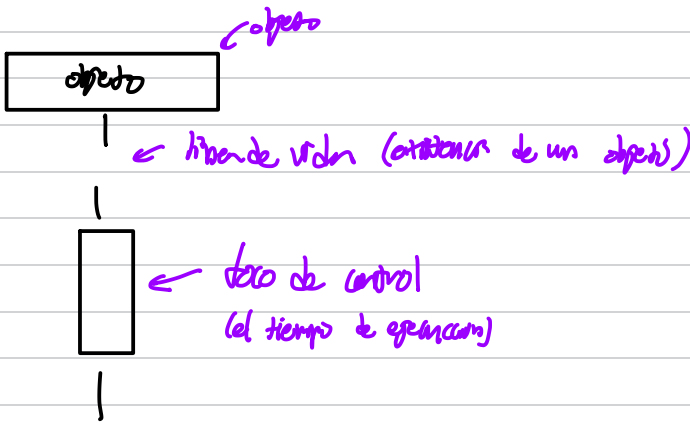 objeto
objeto
línea de vida (existencia de un objeto)
foco de control
(el tiempo de ejecución)